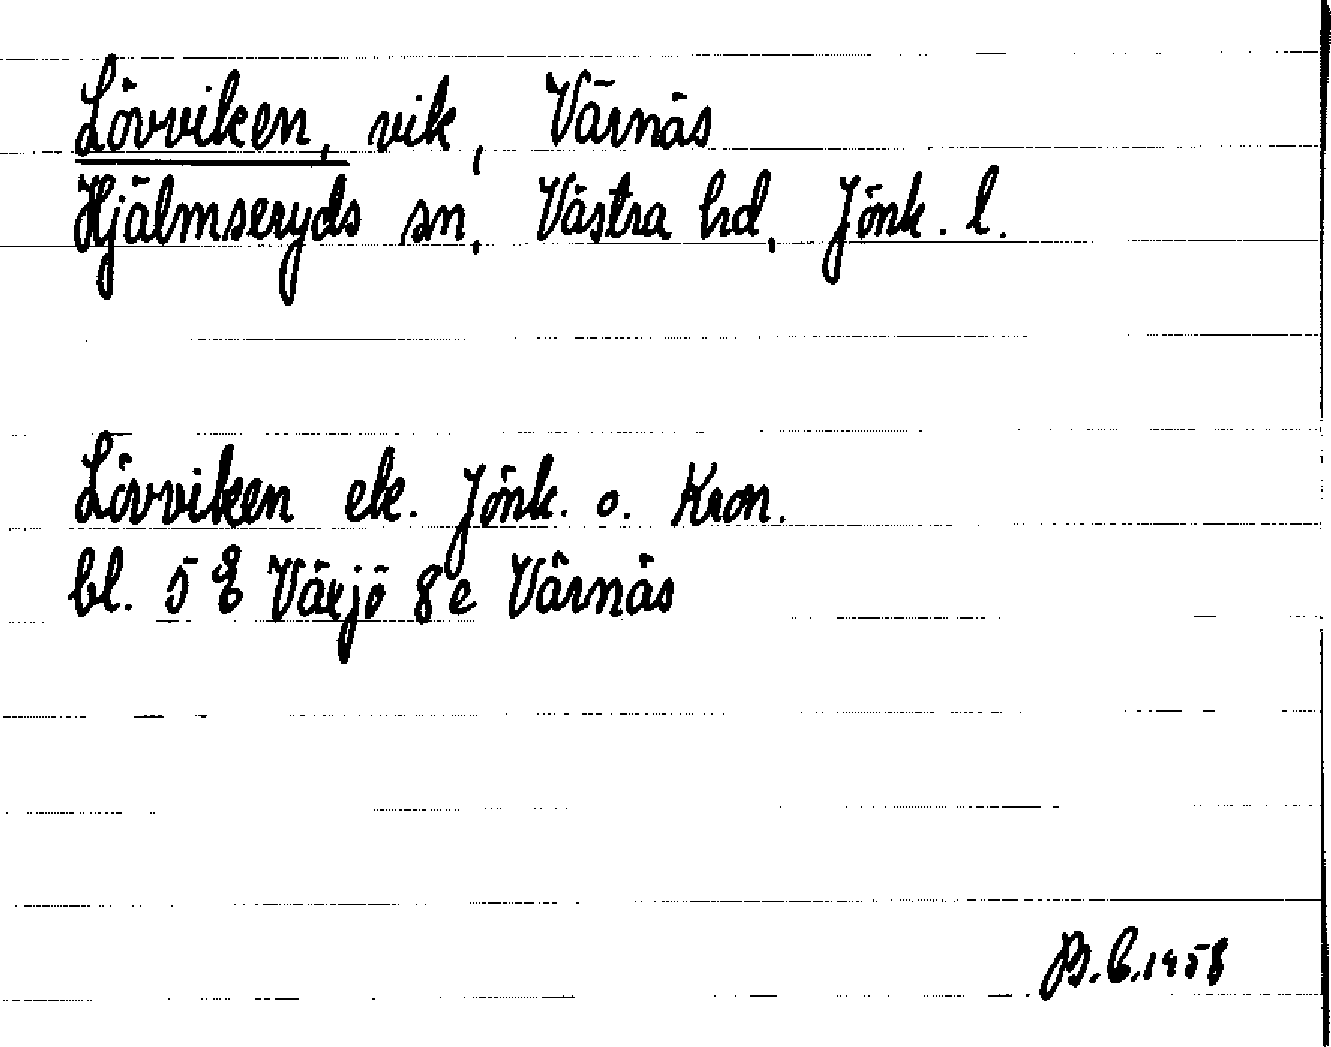 Lövviken, vik, Värnäs
Hjälmseryds sn, Västra hd, Jönk. l.
Lövviken ek. Jönk. o. Kron.
bl. 5 Växjö 8 e Värnäs
B.C. 1958